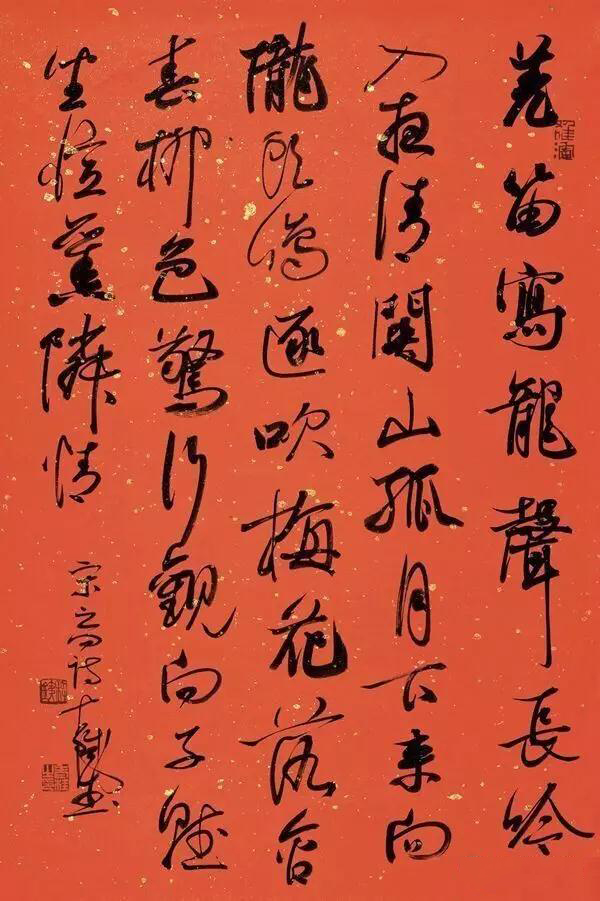 羌笛寫龍聲長吟
入夜清關山孤月下來向
隴頭鳴逐吹梅花落含
春柳色驚行觀向子賦
坐憶舊隣情
宋之問詩